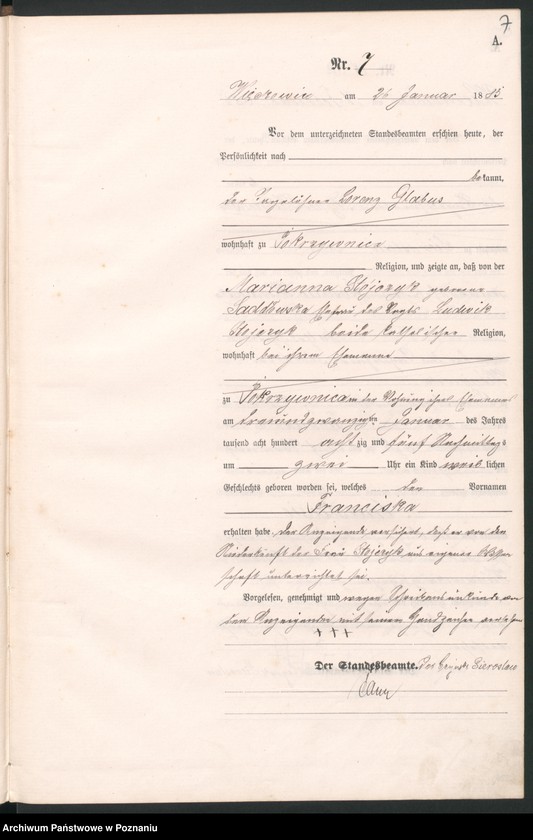 7
A.
Nr. 7
am 26 Januar 1885.
Vor dem unterzeichneten Standesbeamten erschien heute, der
Persönlichkeit nach
bekannt,
der Tagelöhner Lorenz Glabus
wohnhaft zu Pokrzywnica
Religion, und zeigte an, daß von der
Marianna Stojczyk geborene
Ehefrau des Vogts Ludwik
Stojczyk beide katholischer Religion,
wohnhaft bei ihrem Ehemanne
zu Pokrzywnica in der Wohnung ihres Ehemannes
am dreiundzwanzigsten Januar des Jahres
tausend acht hundert achtzig und fünf Nachmittags
um zwei Uhr ein Kind weiblichen
Geschlechts geboren worden sei, welches den Vornamen
Franciska
erhalten habe. Der Anzeigende versichert, daß er von der
Niederkunft der Frau Stojczyk aus eigener Wissen
schaft unterrichtet sei.
Vorgelesen, genehmigt und wegen Schreibensunkunde von
dem Anzeigenden mit seinem Handzeichen versehen
+++
Der Standesbeamte.
Archiwum Państwowe w Poznaniu